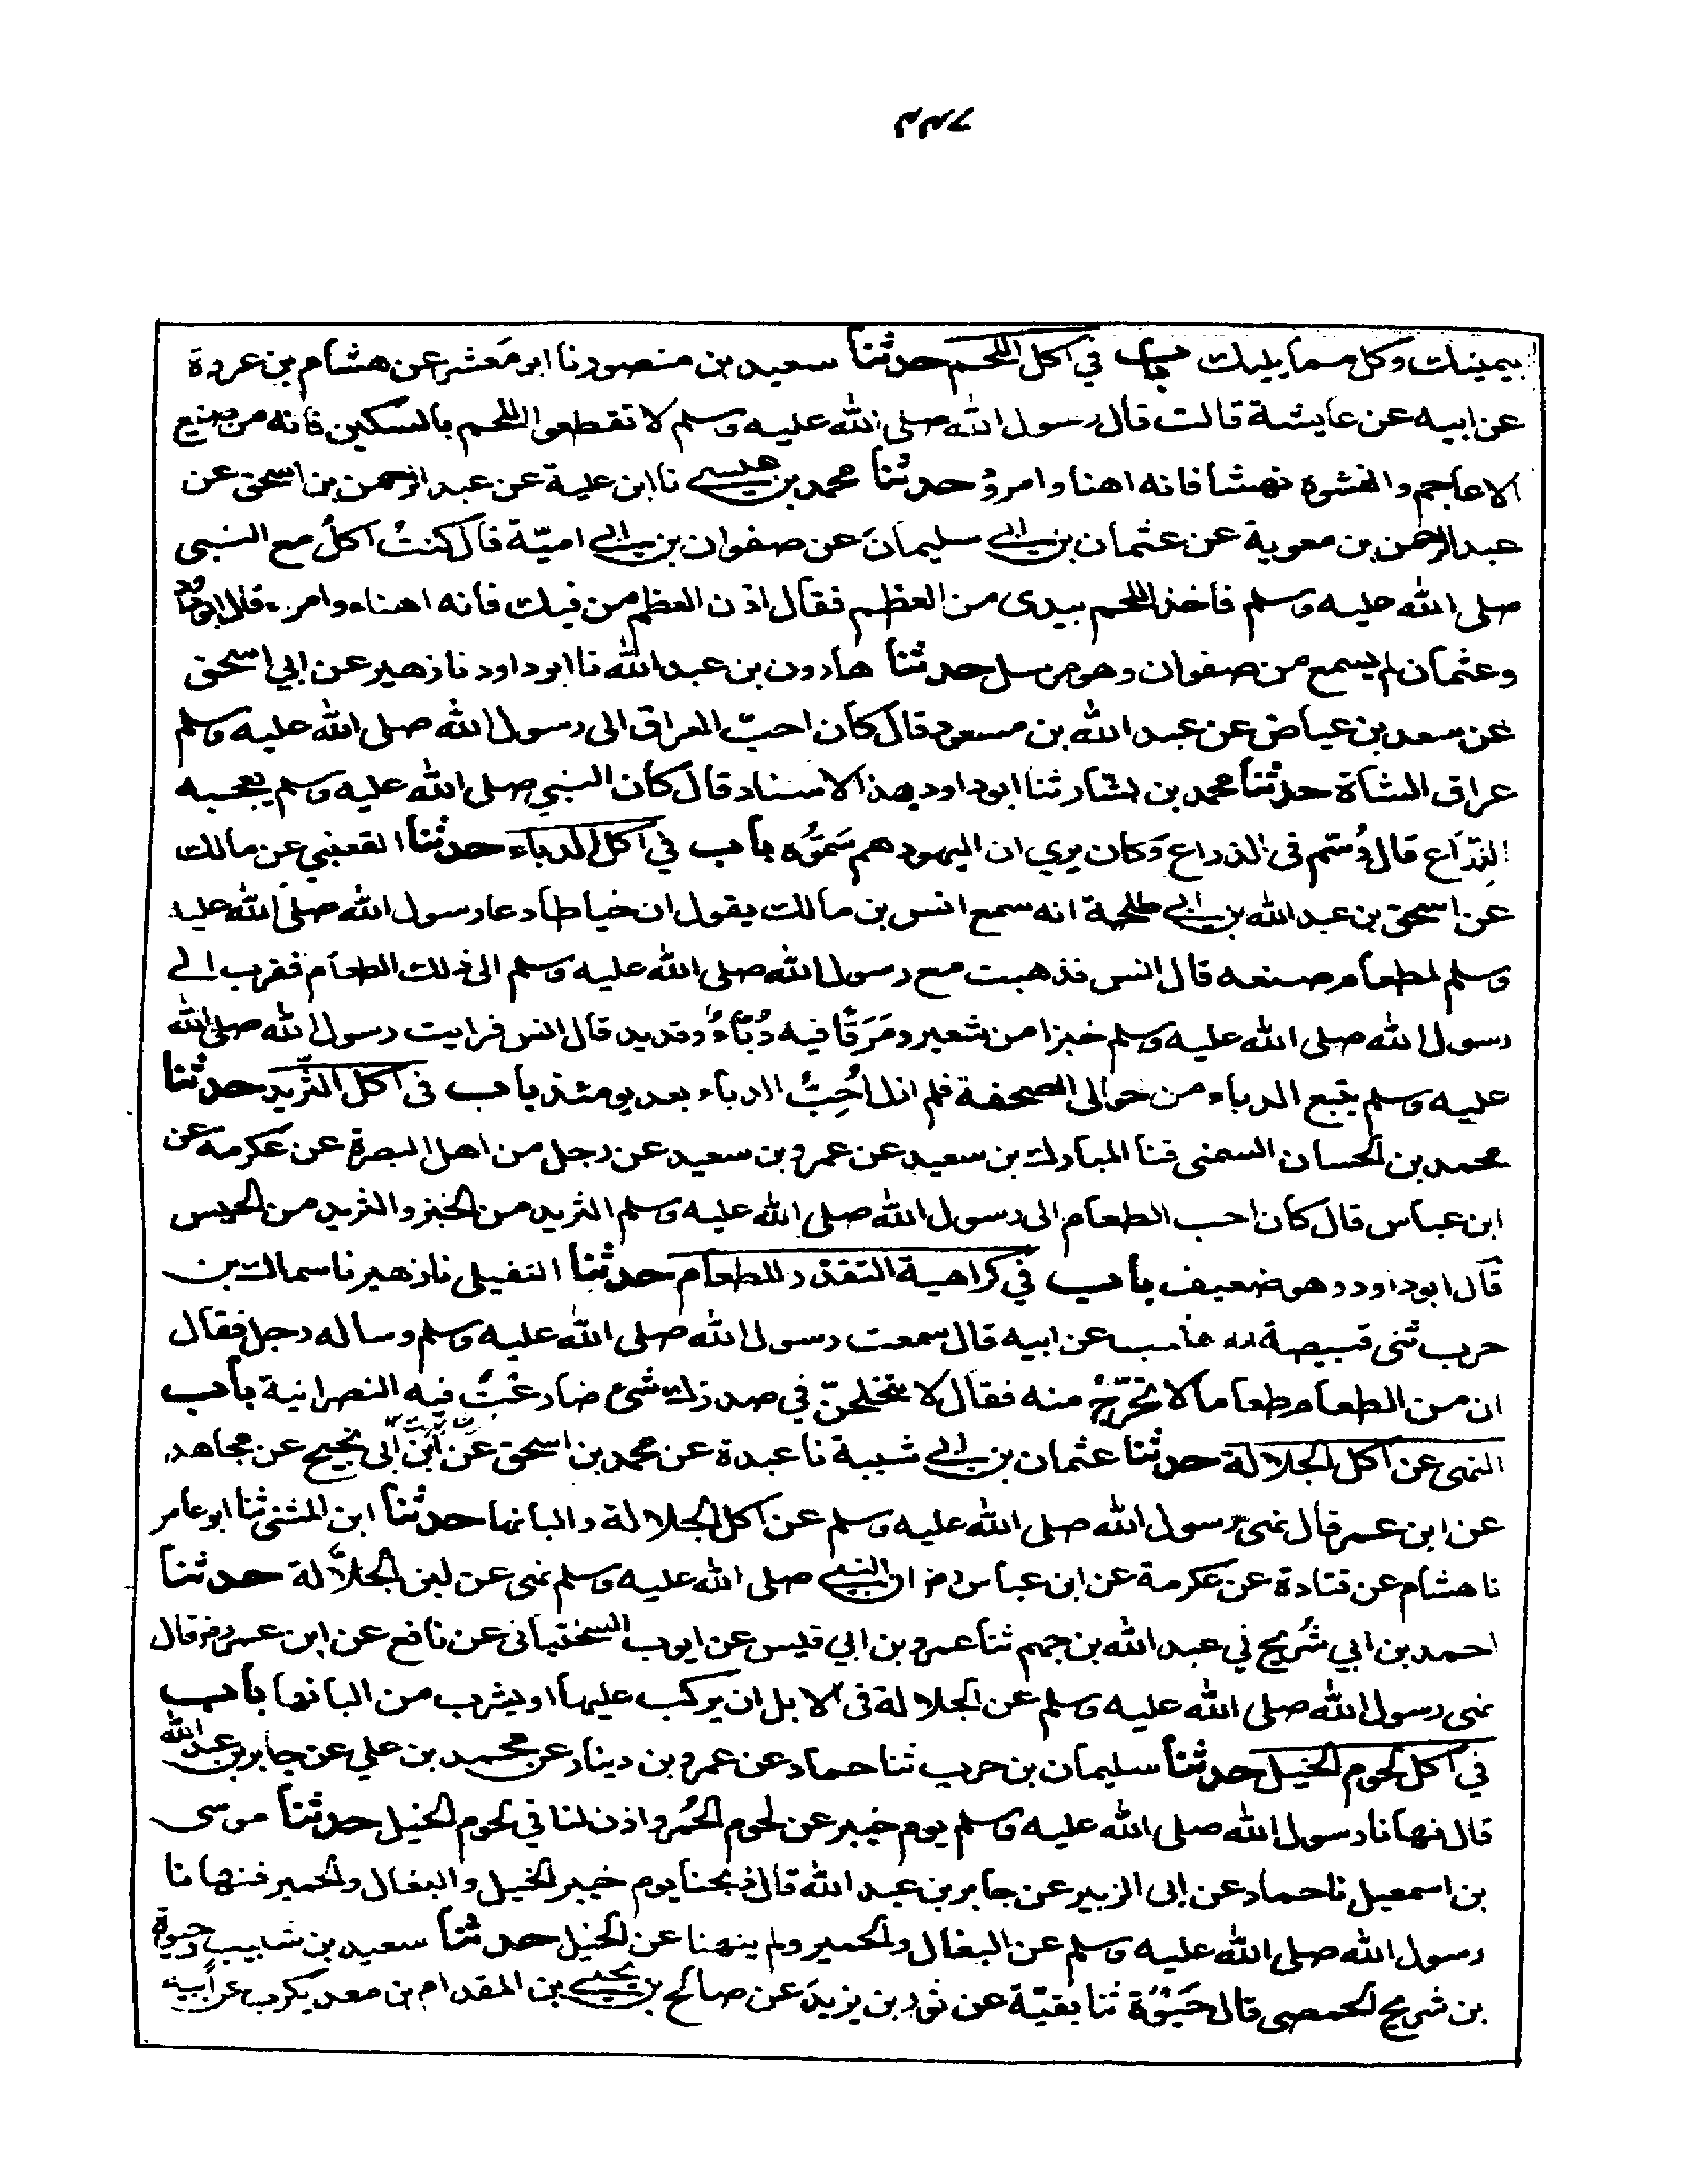 بيمينك وكل مما يليك باب في اكل اللحم حدثنا سعيد بن منصور نا ابو مَعشر عن هشام بن عروة
عن ابيه عن عايشة قالت قال رسول الله صلى الله عليه وسلم لا تقطعوا اللحم بالسكين فانه من صنيع
الاعاجم وانهشوه نهشا فانه اهنا وامرؤ حدثنا محمد بن عيسى نا ابن علية عن عبد الرحمن بن اسحق عن
عبد الرحمن بن معوية عن عثمان بن ابي سليمانَ عن صفوان بن ابي اميّة قال كنتُ اكلُ مع النبى
صلى الله عليه وسلم فاخذ اللحم بيدى من العظم فقال اذن العظم من فيك فانه اهناء وامرء قال ابوداود
وعثمان لم يسمع من صفوان وهو مرسل حدثنا هارون بن عبد الله نا ابو داود نا زهير عن ابي اسحق
عن سعد بن عياض عن عبد الله بن مسعود قال كان احبّ العراق الى رسول الله صلى الله عليه وسلم
عراق الشاة حدثنا محمد بن بشار ثنا ابو داود بهذا الاسناد قال كان النبي صلى الله عليه وسلم يعجبه
الذِّرَاع قال وُسّم فى الذراع وَكان يري ان اليهود هم سَمّوُه باب في اكل الدباء حدثنا القعنبي عن مالك
عن اسحق بن عبد الله بن ابي طلحة انه سمع انس بن مالك يقول ان خياطا دعا رسول الله صلى الله عليه
وسلم لطعام صنعه قال انس فذهبت مع رسول الله صلى الله عليه وسلم الى ذلك الطعام فقرب الى
رسول الله صلى الله عليه وسلم خبزا من شعير ومَرَقًا فيه دُبّاءٌ وقديد قال انس فرايت رسول الله صلى الله
عليه وسلم يتبع الدباء من حوالى الصحفة فلم ازل اُحِبُّ الدباء بعد يومئذ باب فى اكل الثّريد حدثنا
محمد بن الحسان السمنى قثنا المبارك بن سعيد عن عمرو بن سعيد عن رجل من اهل البصرة عن عكرمة عن
ابن عباس قال كان احب الطعام الى رسول الله صلى الله عليه وسلم الثريد من الخبز والثريد من الحيس
قال ابو داود وهو ضعيف باب في كراهية التقذر للطعام حدثنا النفيلى نا زهير نا سماك بن
حرب ثنى قبيصة عن ابيه قال سمعت رسول الله صلى الله عليه وسلم وساله رجل فقال
ان من الطعام طعاما لا تحرّجُ منه فقال لا يتخلجنّ في صدرك شئ ضارعْتَ فيه النصرانية باب
النهى عن اكل الجلالة حدثنا عثمان بن ابي شيبة نا عبدة عن محمد بن اسحق عن ابن ابى نجيح عن مجاهد
عن ابن عمر قال نهى رسول الله صلى الله عليه وسلم عن اكل الجلالة والبانها حدثنا ابن المثنى ثنا ابو عامر
نا هشام عن قتادة عن عكرمة عن ابن عباس رض ان النبي صلى الله عليه وسلم نهى عن لبن الجلاّلة حدثنا
احمد بن ابي شُريح ني عبد الله بن جهم ثنا عمرو بن ابي قيس عن ايوب السختيانى عن نافع عن ابن عمر رض قال
نهى رسول الله صلى الله عليه وسلم عن الجلالة فى الابل ان يركب عليها او يشرب من البانها باب
في اكل لحوم الخيل حدثنا سليمان بن حرب ثنا حماد عن عمرو بن دينار عن محمد بن علي عن جابر بن عبد الله
قال نهانا رسول الله صلى الله عليه وسلم يوم خيبر عن لحوم الحُمر واذن لنا في لحوم الخيل حدثنا موسى
بن اسمعيل نا حماد عن ابى الزبير عن جابر بن عبد الله قال ذبحنا يوم خيبر الخيل والبغال والحمير فنهانا
رسول الله صلى الله عليه وسلم عن البغال والحمير ولم ينهنا عن الخيل حدثنا سعيد بن شبيب وحيوة
بن شريح الحمصى قال حَيْوُة ثنا بقيّة عن ثور بن يزيدَ عن صالح بن يحيى بن المقدام بن معد يكرب عن ابيه